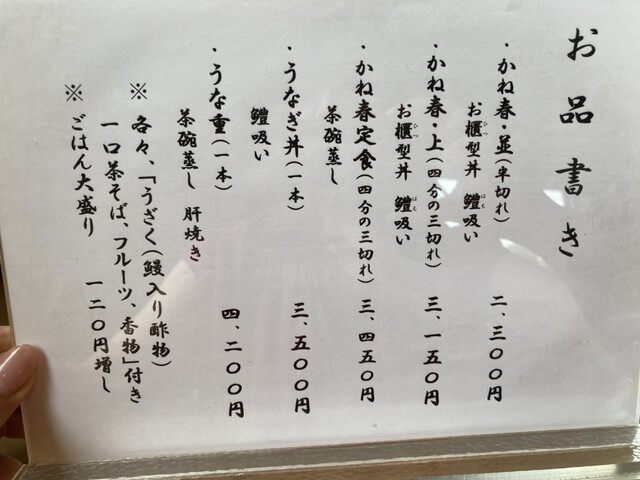 お品書き
・かね春・並(半切れ) 二、三〇〇円
お櫃型丼 鱧吸い
ひつ はも
・かね春・上(四分の三切れ) 三、一五〇円
お櫃型丼 鱧吸い
ひつ はも
・かね春定食(四分の三切れ) 三、四五〇円
茶碗蒸し
・うなぎ丼(一本) 三、五〇〇円
鱧吸い
・うな重(一本) 四、二〇〇円
茶碗蒸し 肝焼き
※ 各々、「うざく(鰻入り酢物)
一口茶そば、フルーツ、香物」付き
※ ごはん大盛り 一二〇円増し